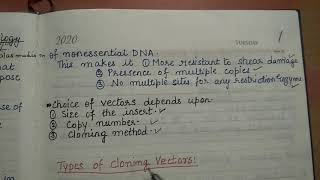 2020
TUESDAY
1
of nonessential DNA.
This makes it ① More resistant to shear damage
② Presence of multiple copies
③ No multiple sites for any restriction enzyme
Choice of vectors depends upon
① Size of the insert.
② Copy number.
③ Cloning method.
Types of Cloning Vectors: